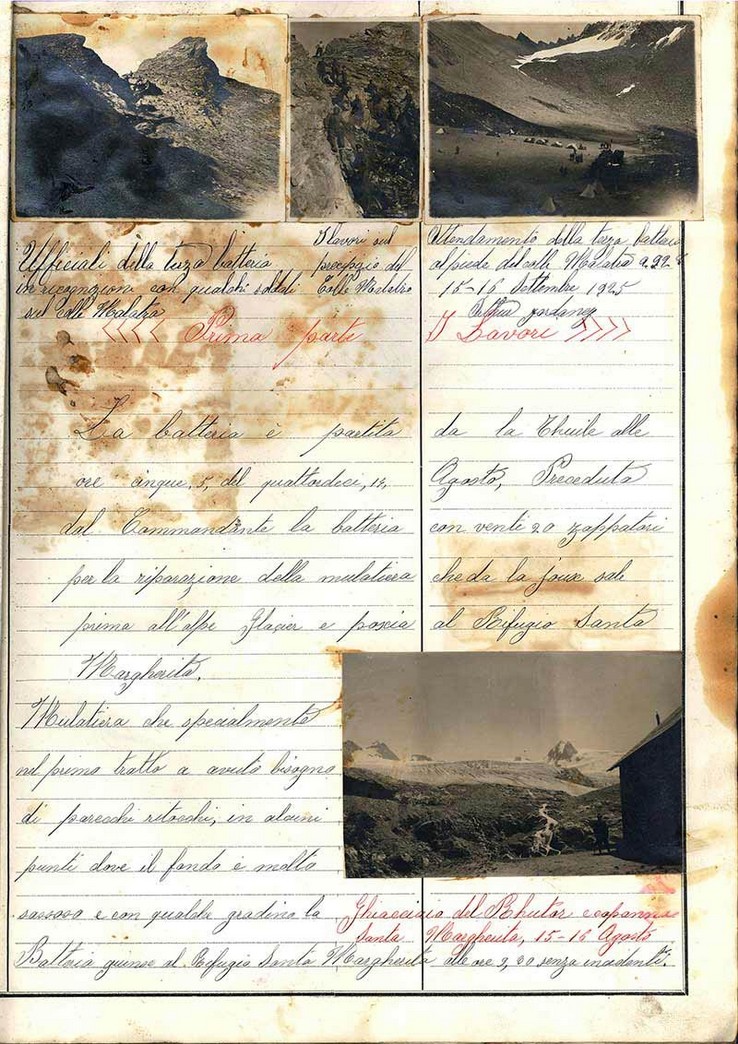 Ufficiali della terza batteria
in ricognizione con qualchi soldati
sul Colle Malatra
I lavori sul
precipizio del
Colle Malatra
Attendamento della terza batteria
al piede del colle Malatra a 22
15-16 Settembre 1925
<<<< Prima parte I Lavori >>>>
La batteria è partita da la Thuile alle
ore cinque, 5, del quattordeci, 14, Agosto, Preceduta
dal Commandante la batteria con venti 20 zappatori
per la riparazione della mulatiera che da la joux sale
prima all'alpe Glacier e poscia al Rifugio Santa
Margherita.
Mulatiera che specialmente
nel primo tratto a avuto bisogno
di parecchi ritocchi, in alcuni
punti dove il fondo è molto
sassoso e con qualche gradino la
Ghiacciaio del Rhutor e capanna
Santa Margherita, 15-16 Agosto
Batteria giunse al Rifugio Santa Margherita alle ore 9,00 senza incidenti.